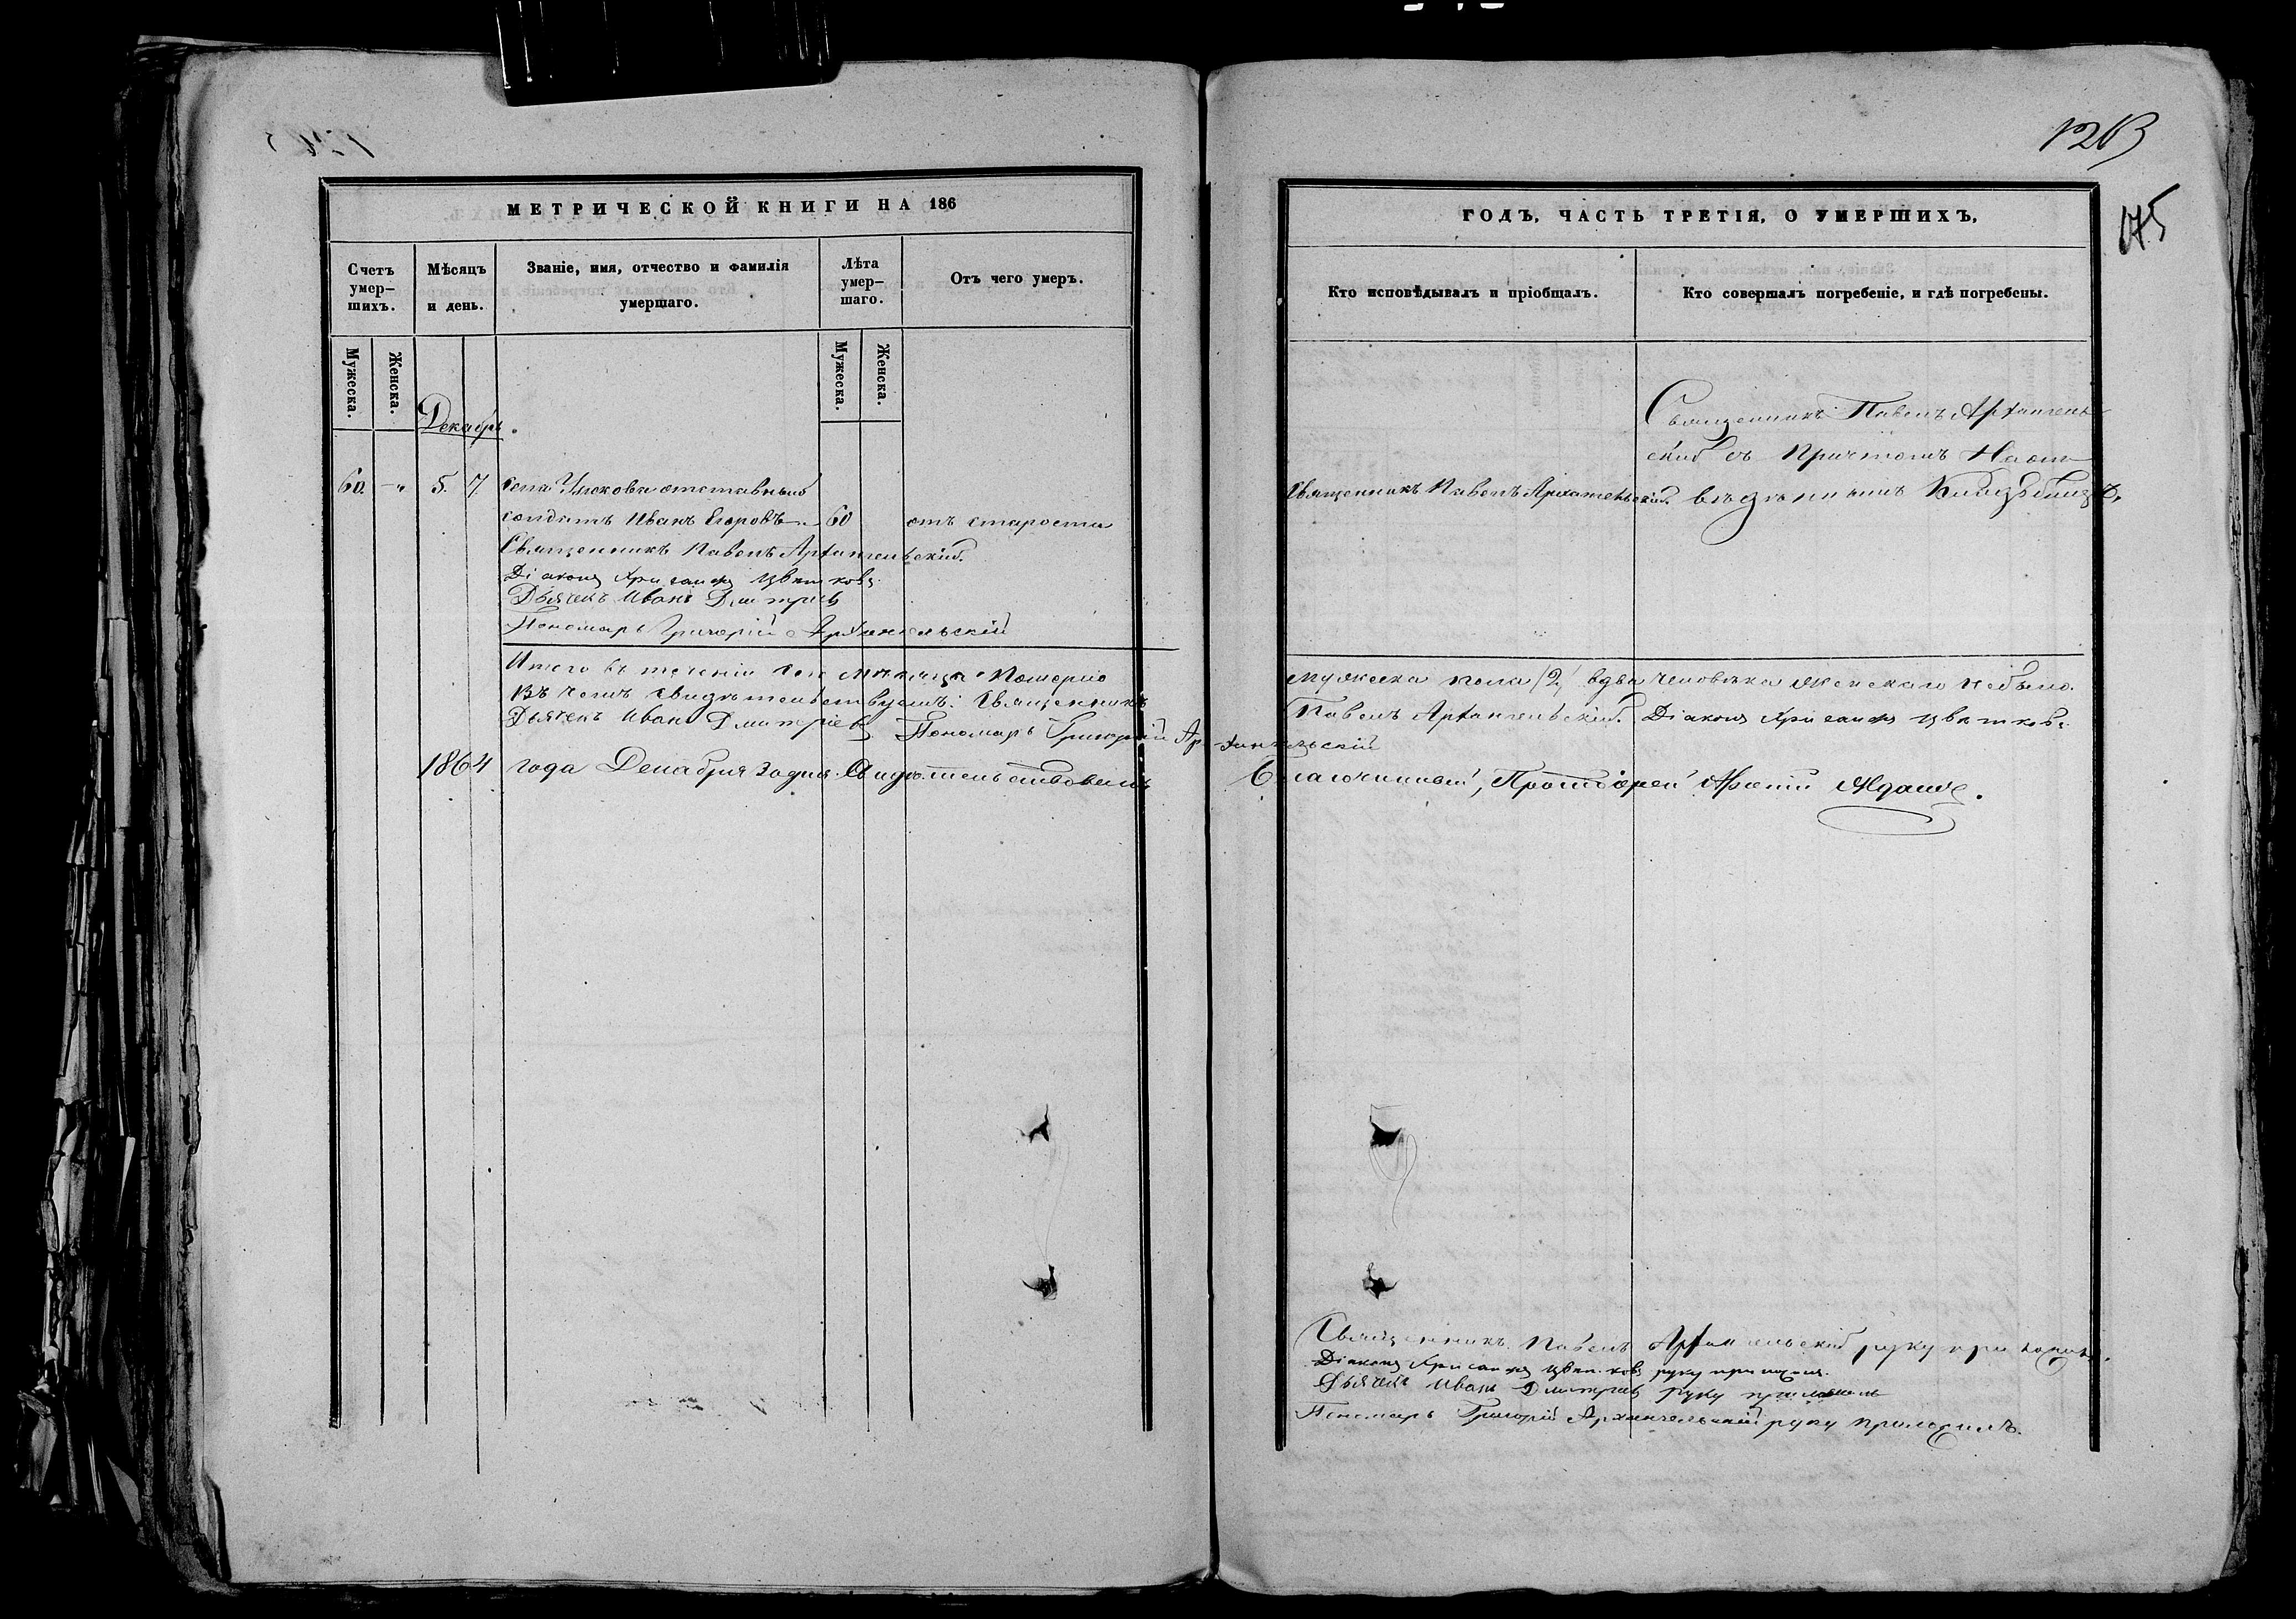 1203
175
МЕТРИЧЕСКОЙ КНИГИ НА 186
Счетъ умер-шихъ.
Мѣсяцъ и день.
Званіе, имя, отчество и фамилія умершаго.
Лѣта умер-шаго.
Отъ чего умеръ.
Мужеска.
Женска.
Мужеска.
Женска.
Декабрь.
60. -"- 5. 7. села отставный
солдатъ Иванъ Егоровъ 60 отъ старости
Священникъ Павелъ Архангельскій.
Діаконъ Хрисанфъ Цвѣтковъ.
Дьячекъ Иванъ Дмитріевъ
Пономарь Григорій Архангельскій
Итого въ теченіи сего мѣсяца Померло
Въ чемъ свидѣтельствуемъ: Священникъ
Дьячекъ Иванъ Дмитріевъ Пономарь Григорій Архангельскій
1864 года Декабря дня. Свидѣтельствовалъ
ГОДЪ, ЧАСТЬ ТРЕТІЯ, О УМЕРШИХЪ,
Кто исповѣдывалъ и пріобщалъ.
Кто совершалъ погребеніе, и гдѣ погребены.
Священникъ Павелъ Архангель-
скій съ Причтомъ На от-
Священникъ Павелъ Архангельскій. веденномъ Кладбищѣ.
мужеска пола /2/ два человѣка женскаго не было.
Павелъ Архангельскій. Діаконъ Хрисанфъ Цвѣтковъ.
Благочинный, Протоіерей
Священникъ Павелъ Архангельскій руку приложилъ.
Діаконъ Хрисанфъ Цвѣтковъ руку приложилъ.
Дьячекъ Иванъ Дмитріевъ руку приложилъ
Пономарь Григорій Архангельскій руку приложилъ.